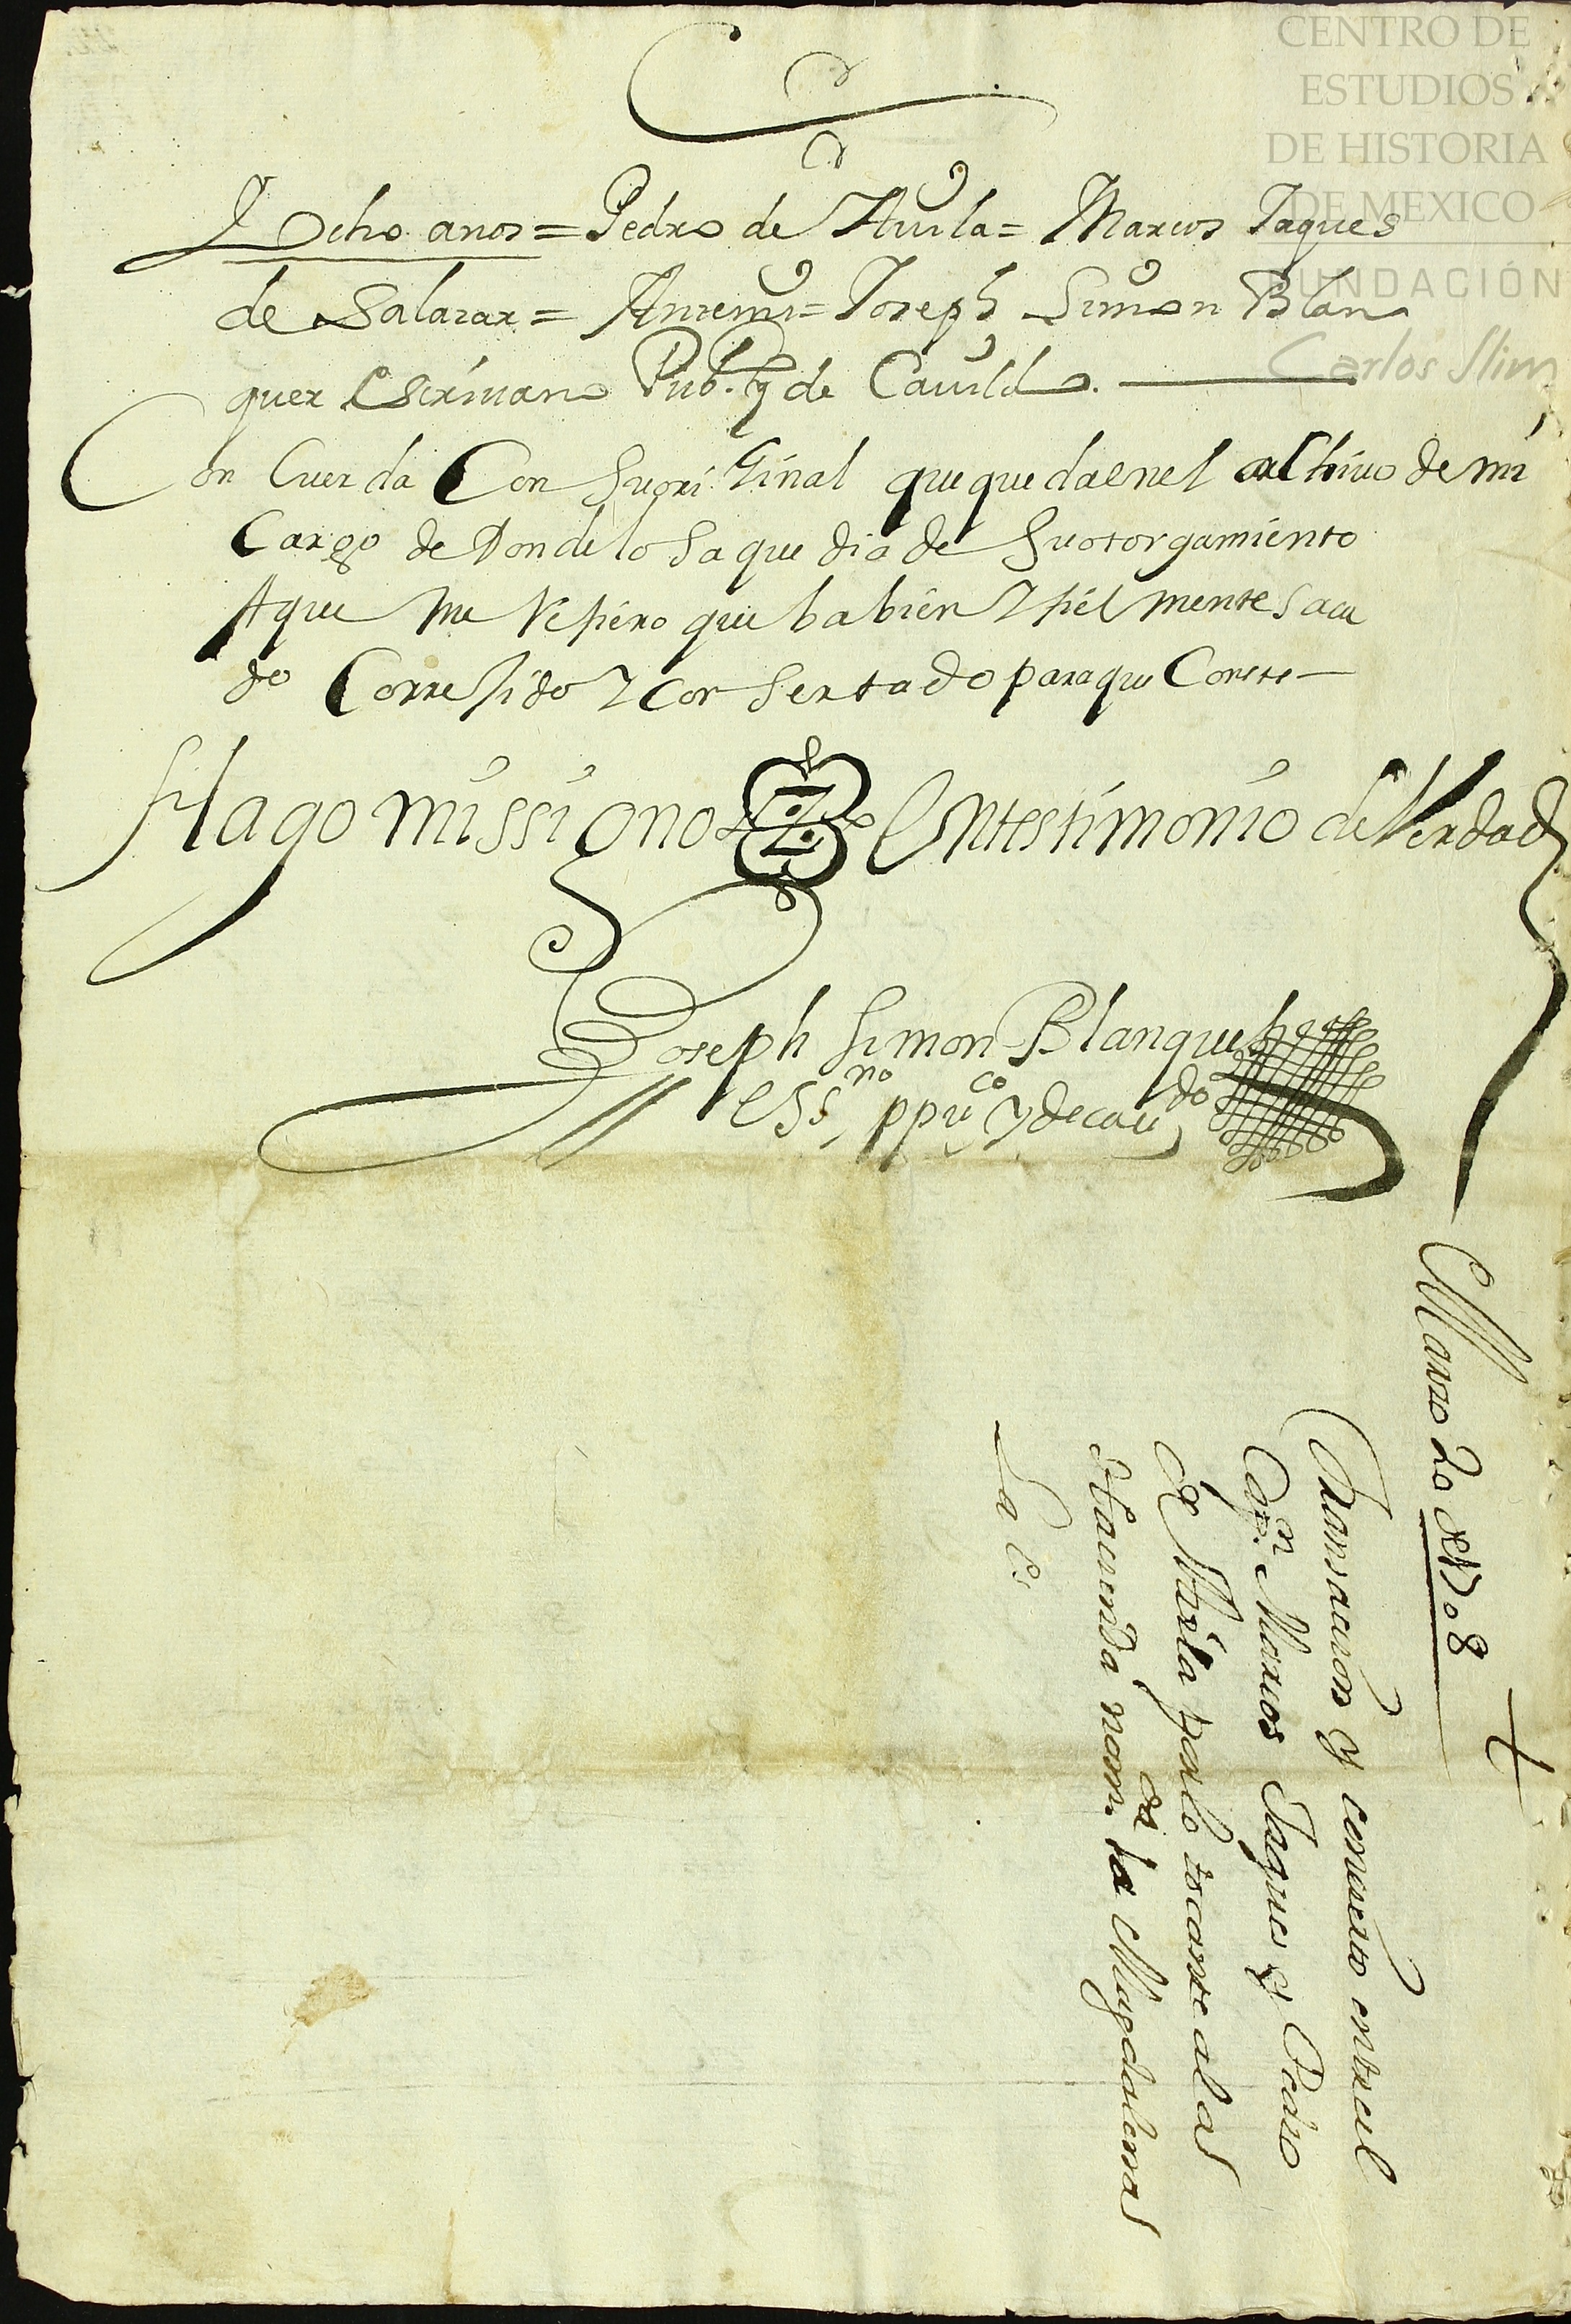 CENTRO DE
ESTUDIOS
DE HISTORIA
DE MEXICO
FUNDACIÓN
Carlos Slim
Y Ocho anos = Pedro de Auila = Marcos Jaques
de Salazar = Antemi = Joseph Simon Blan
quer Escriuano Pub.co y de Cauildo.
Con Cuerda Con Suori Ginal que queda enel archiuo de mi
Cargo de Donde lo Saque dia de Suotorgamiento
Aque me Refiero que babien y fiel mente Saca
do Correjido y Con Sertado para que Conste
Hago missigno En testimonio de Verdad
Joseph Simon Blanquer
Essno ppuco y de cauDo
Marzo 20 de 1708
Transacion y conuenio entre el
Capn Marcos Jaques y Pedro
de Abila por lo tocante a las
Haciendas nom.das la Magdalenas